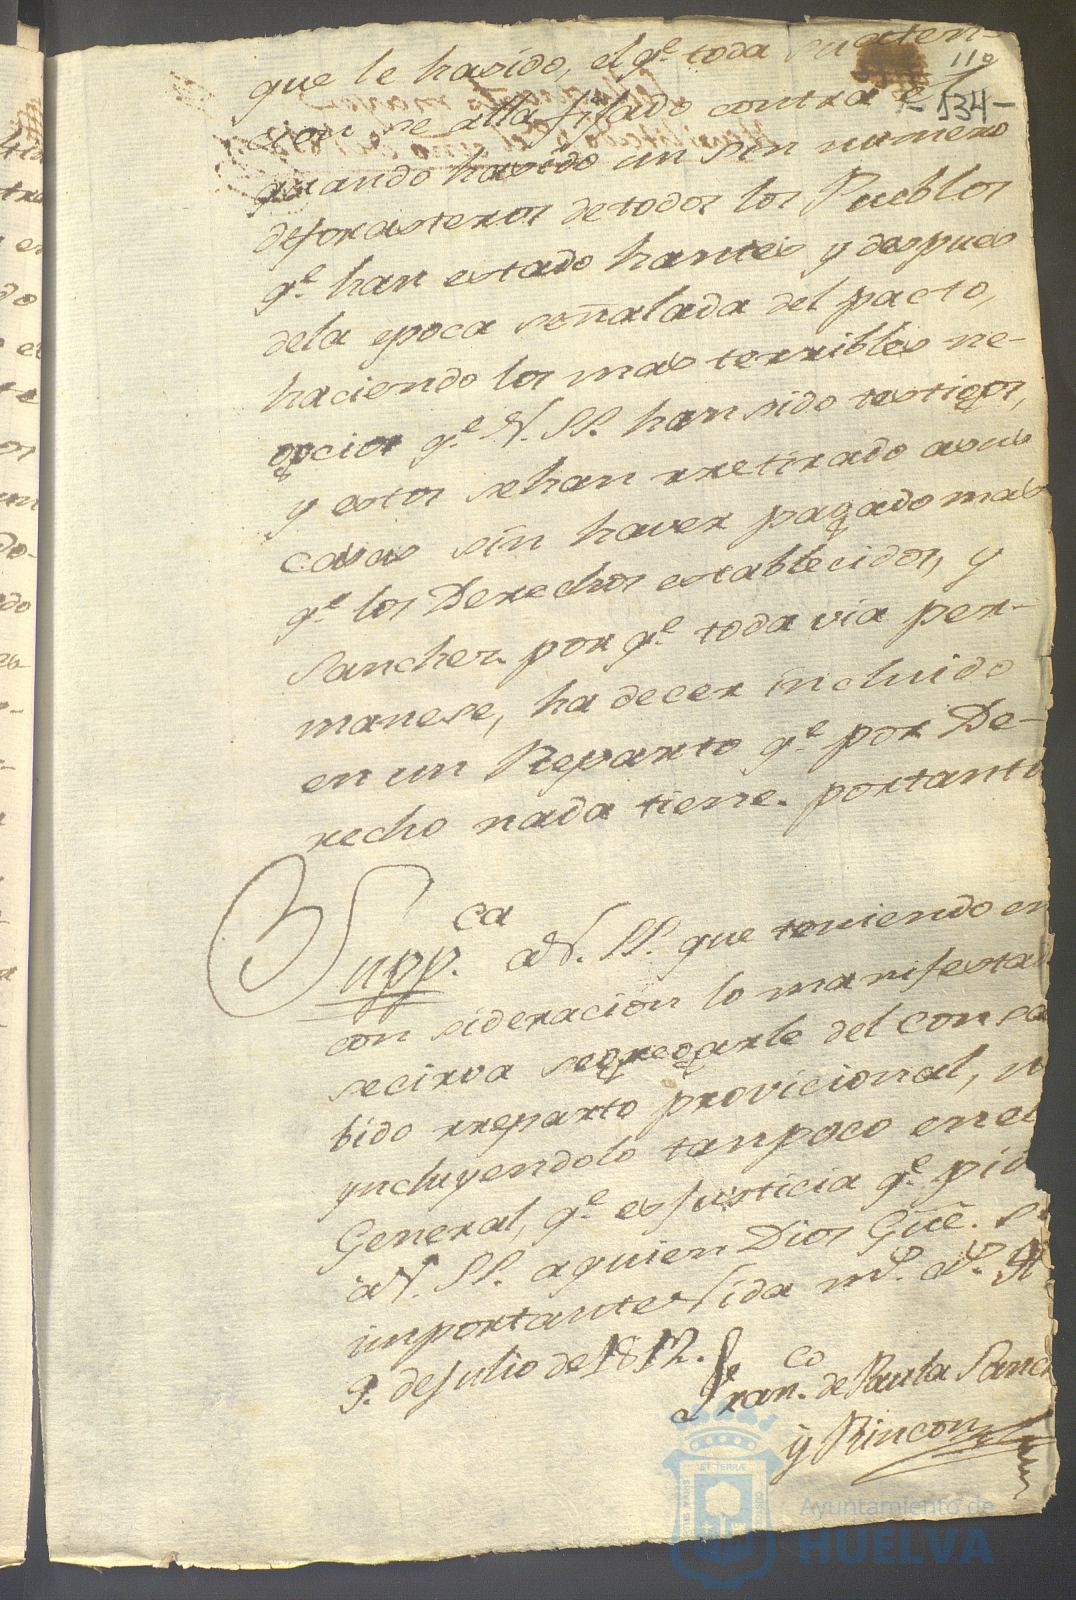 110
-134-
que le havido, el q.e toda su aten-
cion se alla fijado contra el
quando havido un sin numero
deforasteros detodos los Pueblos
q.e han estado hantes y despues
dela epoca señalada del pacto,
haciendo los mas terribles ne-
gocios q.e V. SS. han sido testigos,
y estos sehan rretirado asus
casas sin haver pagado mas
q.e los Derechos establecidos, y
Sanchez por q.e toda via per-
manese, ha decer incluido
en un Reparto q.e por De-
recho nada tiene. portanto
Supp.ca aV. SS. que teniendo en
con sideracion lo manifestad
secirva segregarle del con sa
bido rreparto provicional, n
yncluyendolo tanpoco en el
General, q.e es Justicia q.e pid
aV. SS. aquien Dios Gue. s
importante Vida m.s a.s H
9. deJulio de 1812.
Fran.co de Paula Sanch
y Rincon
Ayuntamiento de
HUELVA